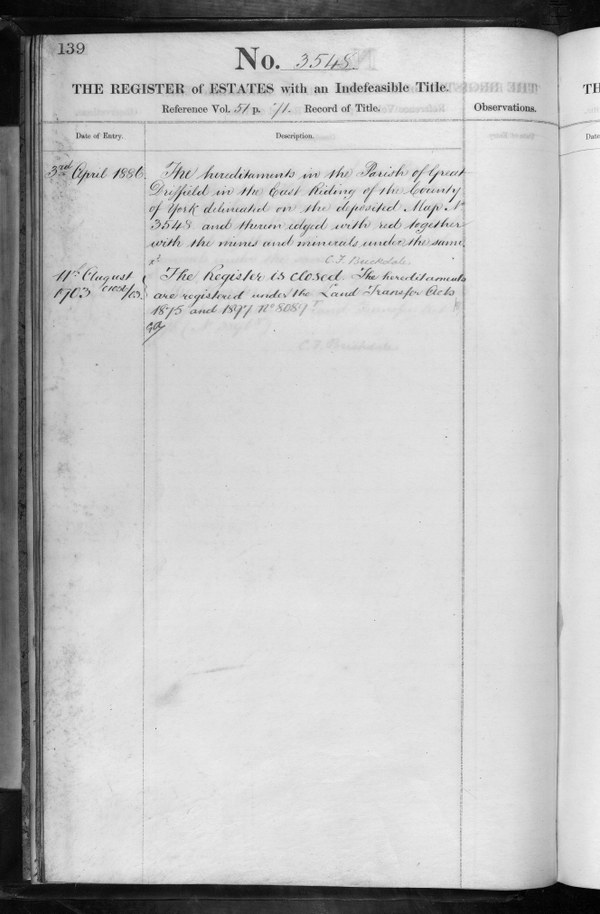 139
No. 3548
THE REGISTER of ESTATES with an Indefeasible Title.
Reference Vol. 51 p. 71. Record of Title.
Observations.
Date of Entry.
Description.
3rd April 1886.
The hereditaments in the Parish of Great
Driffield in the East Riding of the County
of York delineated on the deposited Map No
3548 and thereon edged with red together
with the mines and minerals under the same
11th August
1903
The Register is closed. The hereditaments
are registered under the Land Transfer Acts
1875 and 1897 No 8087
TH
Date